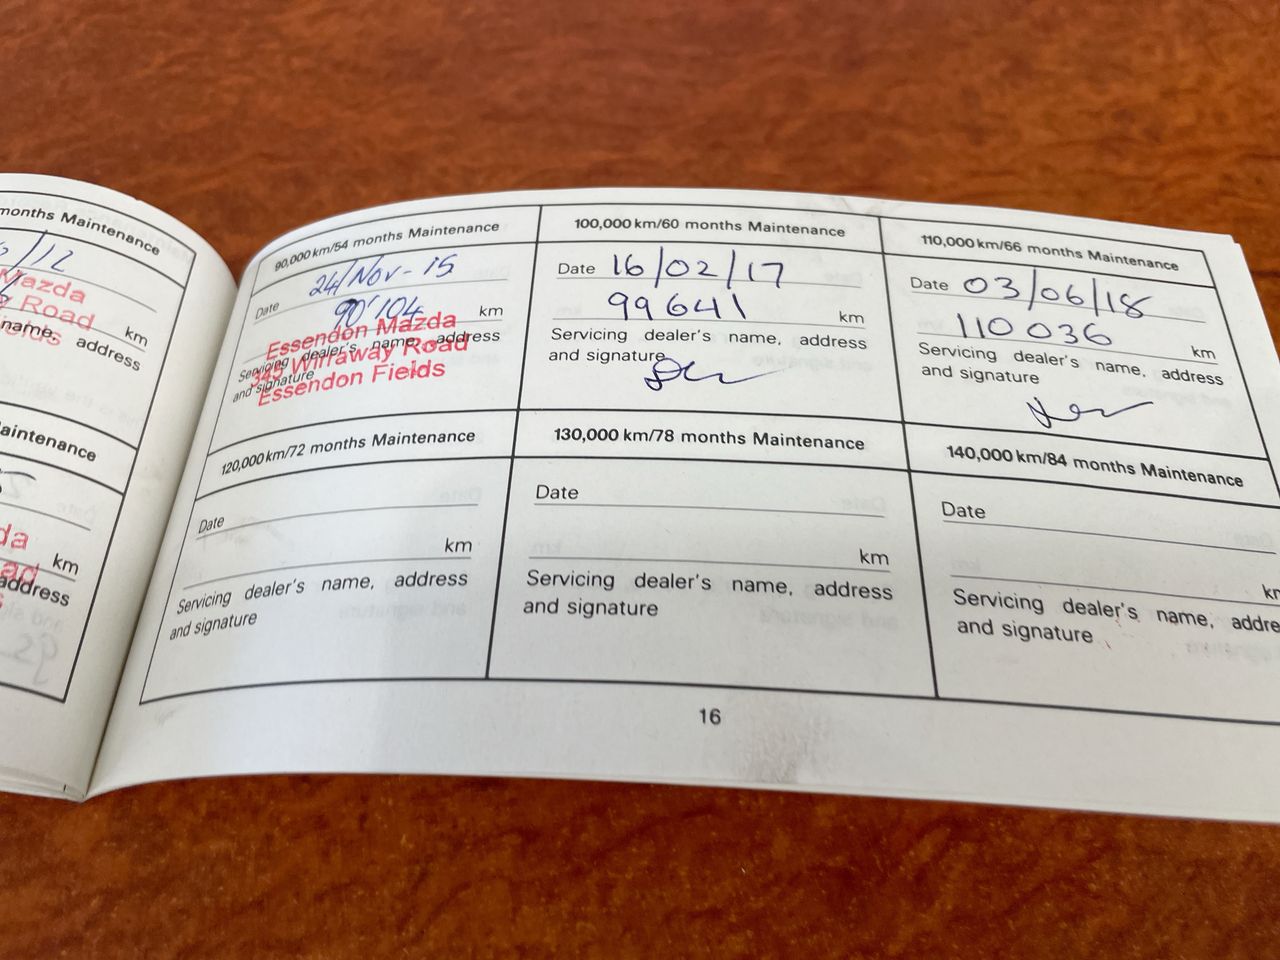 months Maintenance
/12
Mazda
Road
km
name, address
aintenance
da
km
ad
address
90,000 km/54 months Maintenance
Date 24/Nov-15
90'104 km
Essendon Mazda
Servicing dealer's name, address
343 Wirraway Road
and signature
Essendon Fields
100,000 km/60 months Maintenance
Date 16/02/17
99641 km
Servicing dealer's name, address
and signature
110,000 km/66 months Maintenance
Date 03/06/18
110036 km
Servicing dealer's name, address
and signature
120,000 km/72 months Maintenance
Date
km
Servicing dealer's name, address
and signature
130,000 km/78 months Maintenance
Date
km
Servicing dealer's name, address
and signature
140,000 km/84 months Maintenance
Date
Servicing dealer's name, addre
and signature
16